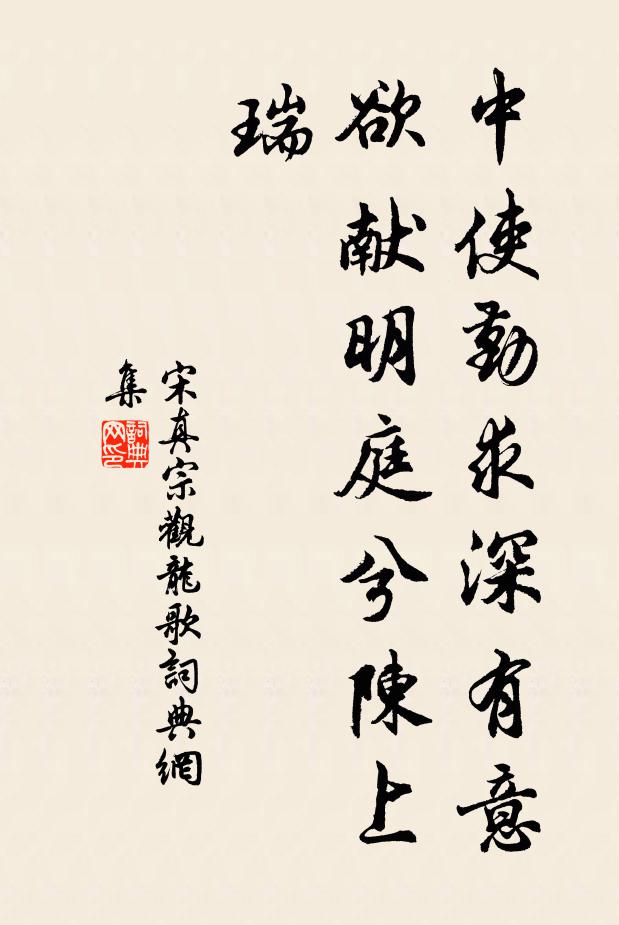 中使勤求深有意
欲献明庭兮陳上
瑞
宋真宗觀龍歌詞典網
集
詞典
网印